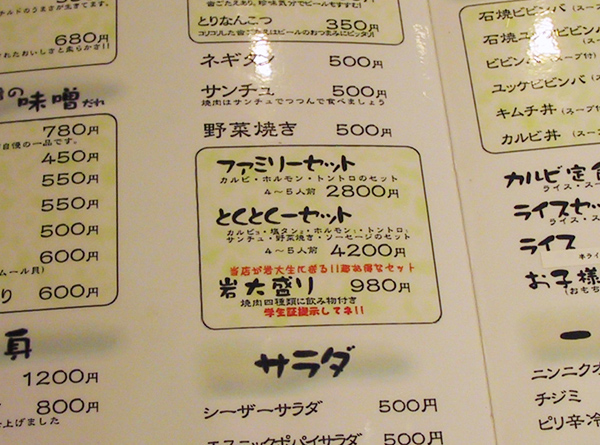 680円
味噌だれ
780円
自慢の一品です。
450円
550円
550円
500円
600円
ムール貝)
り 600円
1200円
800円
上げました
とりなんこつ 350円
コリコリした歯ごたえはビールのおつまみにピッタシ!
ネギタン 500円
サンチュ 500円
焼肉はサンチュでつつんで食べましょう
野菜焼き 500円
ファミリーセット
カルビ・ホルモン・トントロのセット
4〜5人前 2800円
とくとくーセット
カルビ2・塩タン2・ホルモン1・トントロ1
サンチュ・野菜焼き・ソーセージのセット
4〜5人前 4200円
当店が岩大生にぎる!!超お得なセット
岩大盛り 980円
焼肉四種類に飲み物付き
学生証提示してネ!!
サラダ
シーザーサラダ 500円
エスニックポパイサラダ 500円
石焼ビビンバ (スープ
石焼ユッケビビンバ
ビビンバ (スープ付
ユッケビビンバ (ス
キムチ丼 (スープ付
カルビ丼 (スープ
カルビ定食
ライス・ス
ライスセッ
ライス・スー
ライス
お子様
(おもち
ニンニクオ
チジミ
ピリ辛冷